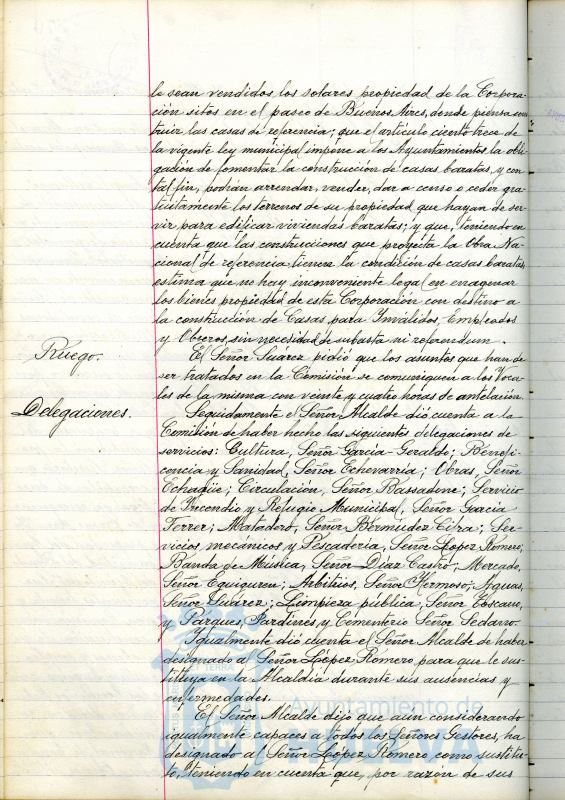 le sean vendidos los solares propiedad de la Corpora-
ción sitos en el paseo de Buenos Aires, donde piensa cons-
truir las casas de referencia; que el artículo ciento trece de
la vigente ley municipal impone a los Ayuntamientos la obli-
gación de fomentar la construcción de casas baratas, y con
tal fin, podrán arrendar, vender, dar a censo o ceder gra-
tuitamente los terrenos de su propiedad que hayan de ser-
vir para edificar viviendas baratas; y que, teniendo en
cuenta que las construcciones que proyecta la Obra Na-
cional de referencia tienen la condición de casas baratas,
estima que no hay inconveniente legal en enagenar
los bienes propiedad de esta Corporación con destino a
la construcción de Casas para Inválidos, Empleados
y Obreros, sin necesidad de subasta ni referendum.
Ruego.
El Señor Suárez pidió que los asuntos que han de
ser tratados en la Comisión se comuniquen a los Voca-
les de la misma con veinte y cuatro horas de antelación.
Delegaciones.
Seguidamente el Señor Alcalde dió cuenta a la
Comisión de haber hecho las siguientes delegaciones de
servicios: Cultura, Señor García-Geraldo; Benefi-
cencia y Sanidad, Señor Echevarría; Obras, Señor
Echagüe; Circulación, Señor Bassadone; Servicio
de Incendio y Refugio Municipal, Señor García
Ferrer; Matadero, Señor Bermúdez Cifra; Ser-
vicios mecánicos y Pescadería, Señor López Romero;
Banda de Música, Señor Díaz Castro; Mercado,
Señor Eguiguren; Arbitrios, Señor Hermoso; Aguas,
Señor Suárez; Limpieza pública, Señor
y Parques, Jardines, y Cementerio Señor Sedano.
Igualmente dió cuenta el Señor Alcalde de haber
designado al Señor López Romero para que le sus-
tituya en la Alcaldía durante sus ausencias y
enfermedades.
El Señor Alcalde dijo que aún considerando
igualmente capaces a todos los Señores Gestores, ha
designado al Señor López Romero como sustitu-
to, teniendo en cuenta que, por razón de sus
Ayuntamiento de